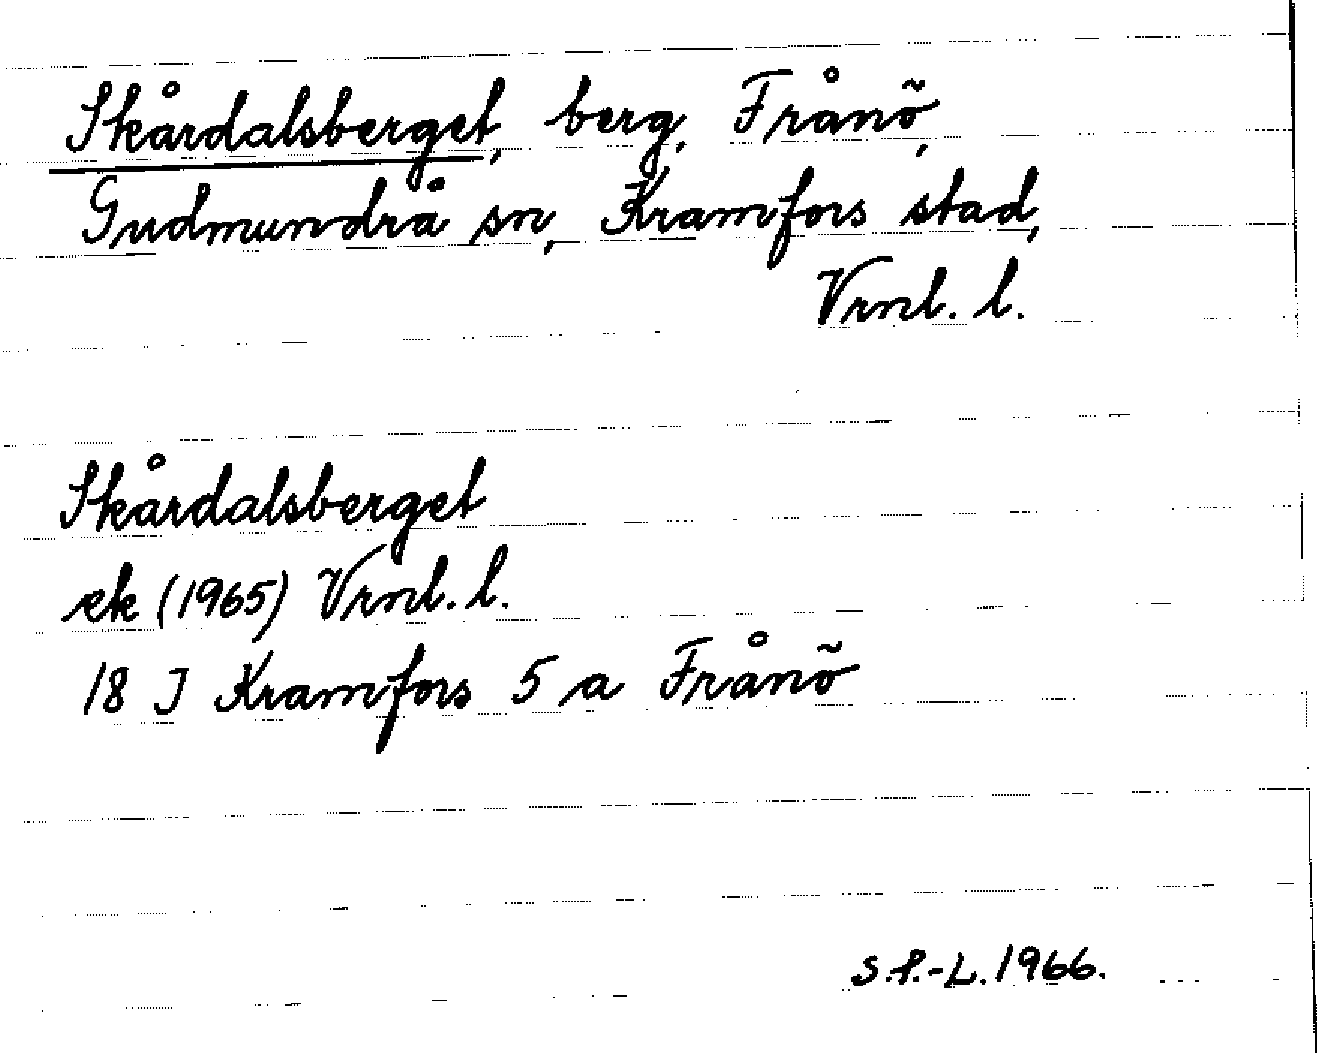 Skårdalsberget, berg, Frånö,
Gudmundrå sn, Kramfors stad,
Vrnl. l.
Skårdalsberget
ek (1965) Vrnl. l.
18 J Kramfors 5 a Frånö
S.P.-L. 1966.